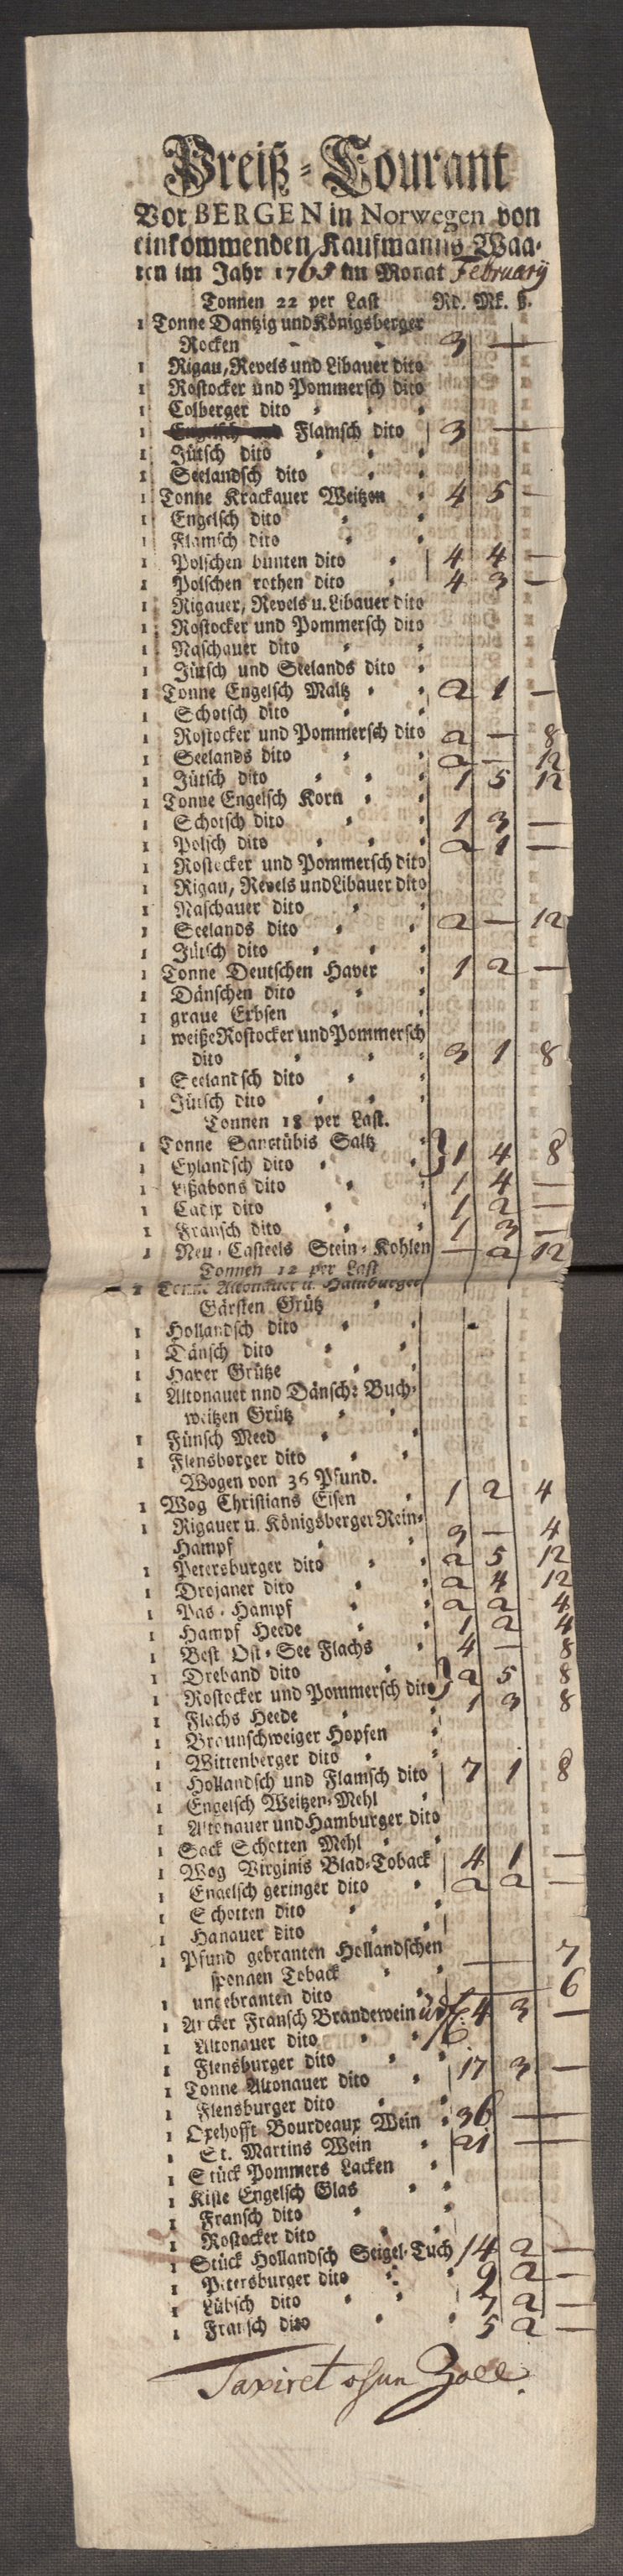 Preiß-Courant
Vor BERGEN in Norwegen von
einkommenden Kaufmanns Waa-
ren im Jahr 1765 im Monat February
Tonnen 22 per Last Rd. Mk. ß.
1 Tonne Dantzig und Königsberger
Rocken 3 —
1 Rigau, Revels und Libauer dito
1 Rostocker und Pommersch dito
1 Colberger dito
1 Flamsch dito 3 —
1 Jütsch dito
1 Seelandsch dito
1 Tonne Krackauer Weitzen 4 5 —
1 Engelsch dito
1 Flamsch dito
1 Polschen bunten dito 4 4 —
1 Polschen rothen dito 4 3 —
1 Rigauer, Revels u. Libauer dito
1 Rostocker und Pommersch dito
1 Naschauer dito
1 Jütsch und Seelands dito
1 Tonne Engelsch Maltz 2 1 —
1 Schotsch dito
1 Rostocker und Pommersch dito 2 — 8
1 Seelands dito 2 — 12
1 Jütsch dito 1 5 12
1 Tonne Engelsch Korn
1 Schotsch dito 1 3 —
1 Polsch dito 2 1 —
1 Rostocker und Pommersch dito
1 Rigau, Revels und Libauer dito
1 Naschauer dito
1 Seelands dito 2 — 12
1 Jütsch dito
1 Tonne Deutschen Haver 1 2 —
1 Dänschen dito
1 graue Erbsen
1 weiße Rostocker und Pommersch
dito 3 1 8
1 Seelandsch dito
1 Jütsch dito
Tonnen 18 per Last.
1 Tonne Sanctübis Saltz } 1 4 8
1 Eylandsch dito
1 Lißabons dito 1 4 —
1 Cadix dito 1 2 —
1 Fransch dito 1 3 —
1 Neu-Casteels Stein-Kohlen — 2 12
Tonnen 12 per Last
1 Tonne Altonauer u. Hamburger
Gärsten Grütz
1 Hollandsch dito
1 Dänsch dito
1 Haver Grütze
1 Altonauer und Dänsch: Buch-
weitzen Grütz
1 Fünsch Meed
1 Flensborger dito
Wogen von 36 Pfund.
1 Wog Christians Eisen 1 2 4
1 Rigauer u. Königsberger Rein-
Hampf 3 — 4
1 Petersburger dito 2 5 12
1 Drojaner dito 2 4 12
1 Pas-Hampf 2 2 4
1 Hampf Heede 1 2 4
1 Best Ost-See Flachs 4 — 8
1 Dreband dito } 2 5 8
1 Rostocker und Pommersch dito
1 Flachs Heede 1 3 8
1 Braunschweiger Hopfen
1 Wittenberger dito
1 Hollandsch und Flamsch dito 7 1 8
1 Engelsch Weitzen-Mehl
1 Altonauer und Hamburger dito
1 Sack Schotten Mehl
1 Wog Virginis Blad-Toback 4 1 —
1 Engelsch geringer dito 2 2 —
1 Schotten dito
1 Hanauer dito
1 Pfund gebranten Hollandschen
sponnen Toback — 7
1 ungebranten dito — 6
1 Ancker Fransch Brandewein 4 3 —
1 Altonauer dito
1 Flensburger dito 17 3 —
1 Tonne Altonauer dito
1 Flensburger dito
1 Oxehofft Bourdeaux Wein 36 —
1 St. Martins Wein 21 —
1 Stück Pommers Lacken
1 Kiste Engelsch Glas
1 Fransch dito
1 Rostocker dito
1 Stück Hollandsch Seigel-Tuch 14 2 —
1 Petersburger dito 9 2 —
1 Lübsch dito 7 2 —
1 Fransch dito 5 2 —
Taxiret ohne Zoll.